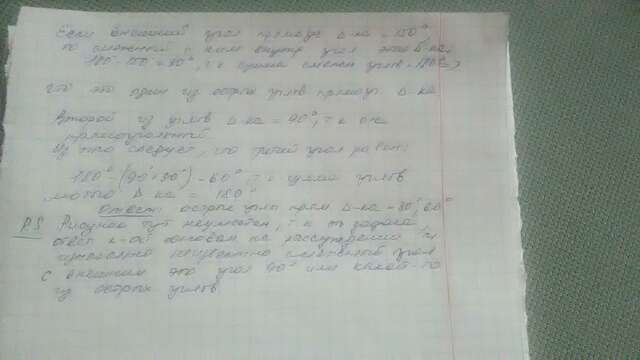 Если внешний угол прямоуг Δ-ка = 150°,
то смежный с ним внутр угол этого Δ-ка
180-150 = 30°, т.к сумма смежн углов = 180° =>
что это один из остры углов прямоуг Δ-ка
Второй из углов Δ-ка = 90°, т к он
прямоугольный
Из того следует, что третий угол равен:
180°-(90°+30°) = 60° т.к сумма углов
Δ-ка = 180°
Ответ: острые углы прям Δ-ка = 30°, 60°
P.S Рисунок тут неуместен, т.к это задача
ответ к-ой основан на рассуждении
изначально неизвестно смежный угол
с внешним это угол 90° или какой-то
из острых углов.